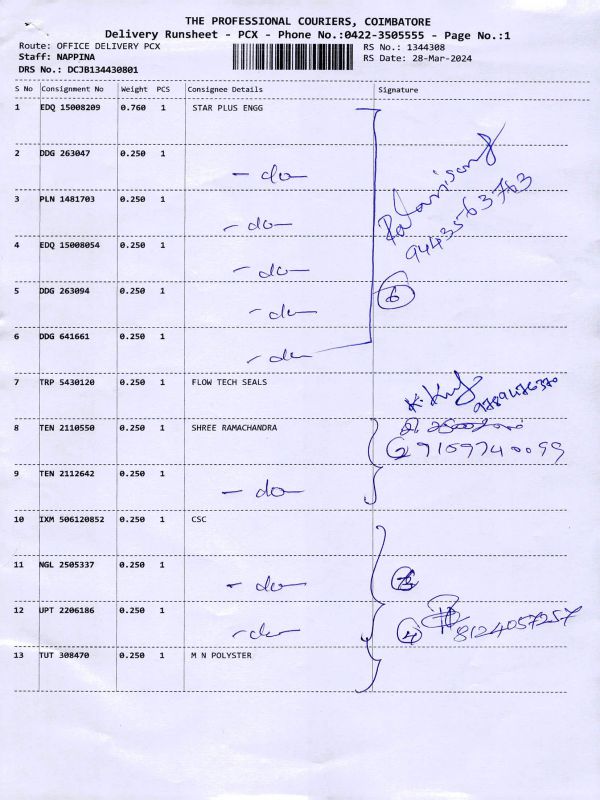 THE PROFESSIONAL COURIERS, COIMBATORE
Delivery Runsheet - PCX - Phone No.:0422-3505555 - Page No.:1
Route: OFFICE DELIVERY PCX
RS No.: 1344308
Staff: NAPPINA
RS Date: 28-Mar-2024
DRS No.: DCJB134430801
S No Consignment No Weight PCS Consignee Details Signature
1 EDQ 15008209 0.760 1 STAR PLUS ENGG
2 DDG 263047 0.250 1
- do -
3 PLN 1481703 0.250 1
- do -
9443563763
4 EDQ 15008054 0.250 1
- do -
5 DDG 263094 0.250 1
6
- do -
6 DDG 641661 0.250 1
- do -
7 TRP 5430120 0.250 1 FLOW TECH SEALS
8 TEN 2110550 0.250 1 SHREE RAMACHANDRA
2 9159740099
9 TEN 2112642 0.250 1
- do -
10 IXM 506120852 0.250 1 CSC
11 NGL 2505337 0.250 1
- do -
12 UPT 2206186 0.250 1
- do -
4 8124057257
13 TUT 308470 0.250 1 M N POLYSTER